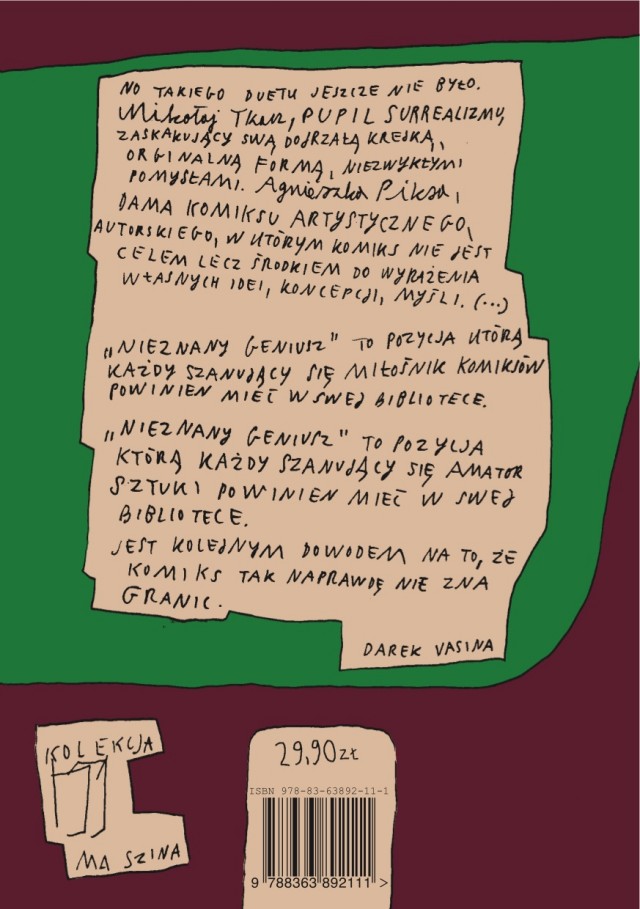 NO TAKIEGO DUETU JESZCZE NIE BYŁO.
Mikołaj Tkacz, PUPIL SURREALIZMU,
ZASKAKUJĄCY SWĄ DOJRZAŁĄ KRESKĄ,
ORGINALNĄ FORMĄ, NIEZWYKŁYMI
POMYSŁAMI. Agnieszka Piksa,
DAMA KOMIKSU ARTYSTYCZNEGO,
AUTORSKIEGO, W KTÓRYM KOMIKS NIE JEST
CELEM LECZ ŚRODKIEM DO WYRAŻENIA
WŁASNYCH IDEI, KONCEPCJI, MYŚLI. (...)
„NIEZNANY GENIUSZ" TO POZYCJA KTÓRĄ
KAŻDY SZANUJĄCY SIĘ MIŁOŚNIK KOMIKSÓW
POWINIEN MIEĆ W SWEJ BIBLIOTECE.
„NIEZNANY GENIUSZ" TO POZYCJA
KTÓRĄ KAŻDY SZANUJĄCY SIĘ AMATOR
SZTUKI POWINIEN MIEĆ W SWEJ
BIBLIOTECE.
JEST KOLEJNYM DOWODEM NA TO, ŻE
KOMIKS TAK NAPRAWDĘ NIE ZNA
GRANIC.
DAREK VASINA
KOLEKCJA
MA SZINA
29,90 zł
ISBN 978-83-63892-11-1
9 788363 892111 >